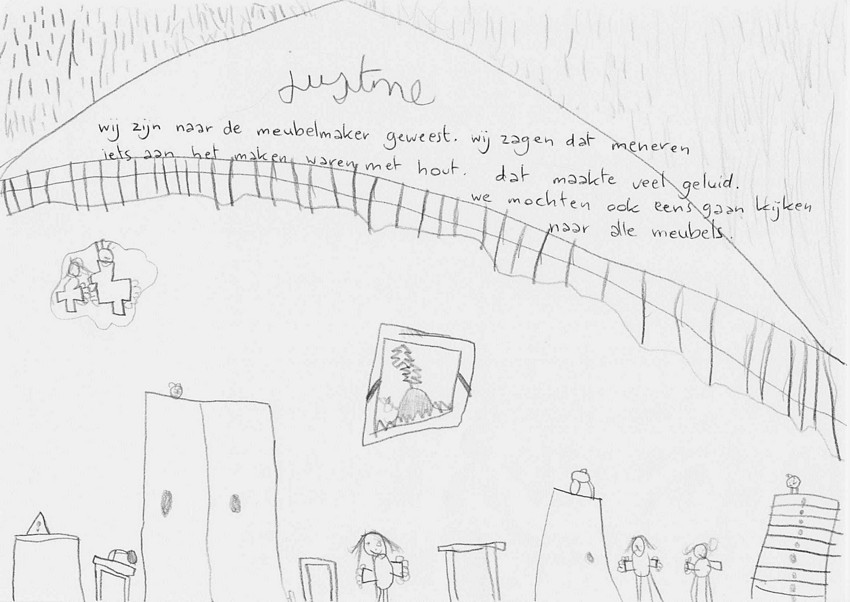 justine
wij zijn naar de meubelmaker geweest. wij zagen dat meneren
iets aan het maken waren met hout. dat maakte veel geluid.
we mochten ook eens gaan kijken
naar alle meubels.